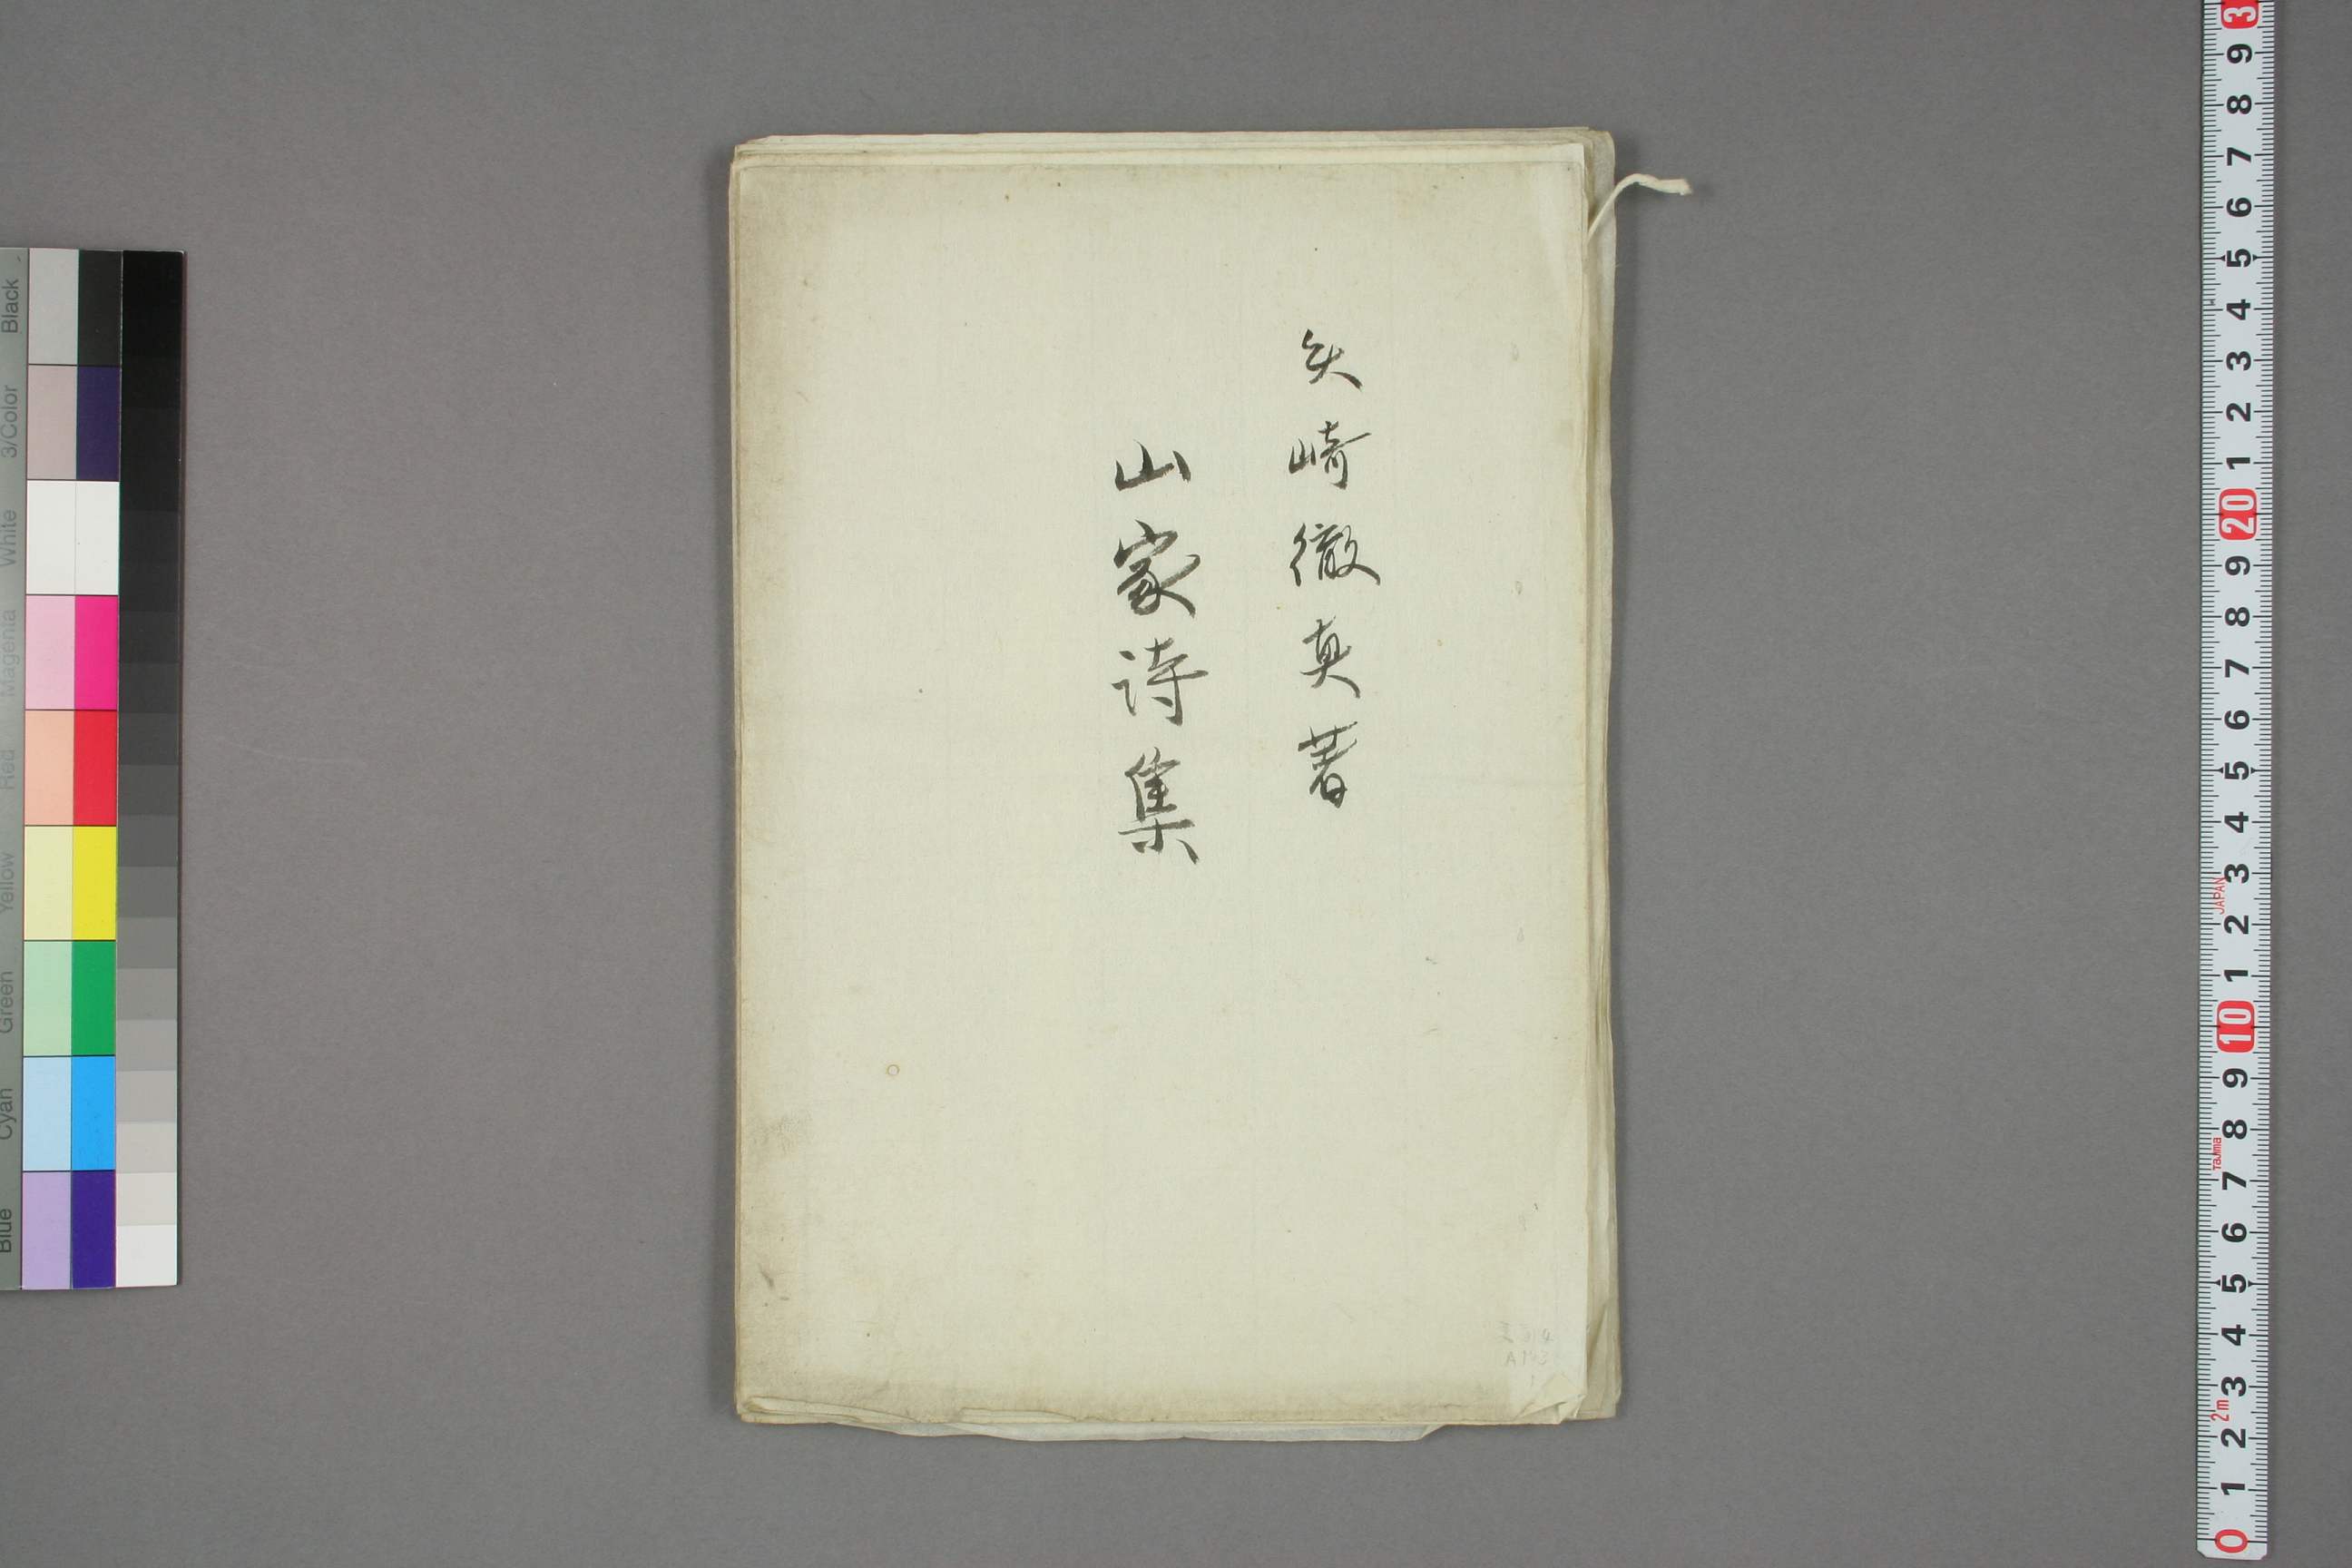 矢崎徹真著
山家诗集
Black
3/Color
White
Magenta
Red
Yellow
Green
Cyan
Blue
3
9
8
7
6
5
4
3
2
1
20
9
8
7
6
5
4
3
2
1
10
9
8
7
6
5
4
3
2
1
0
JAPAN
Tajima
2m